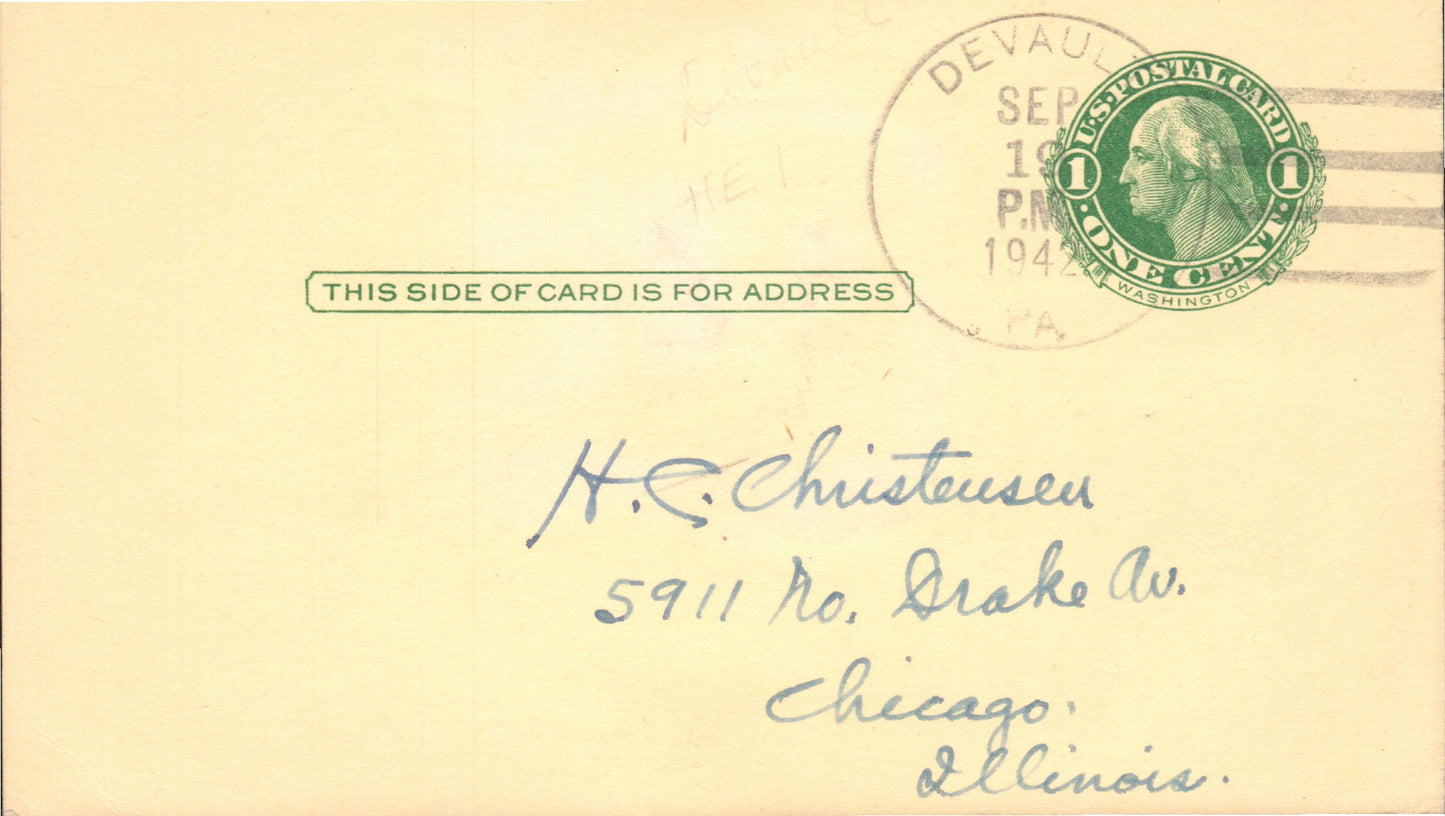 Devault
DEVAULT
SEP
19
P.M
1942
PA.
U.S. POSTAL CARD
1 1
ONE CENT
WASHINGTON
HE 1
THIS SIDE OF CARD IS FOR ADDRESS
H. C. Christensen
5911 No. Drake Av.
Chicago.
Illinois.